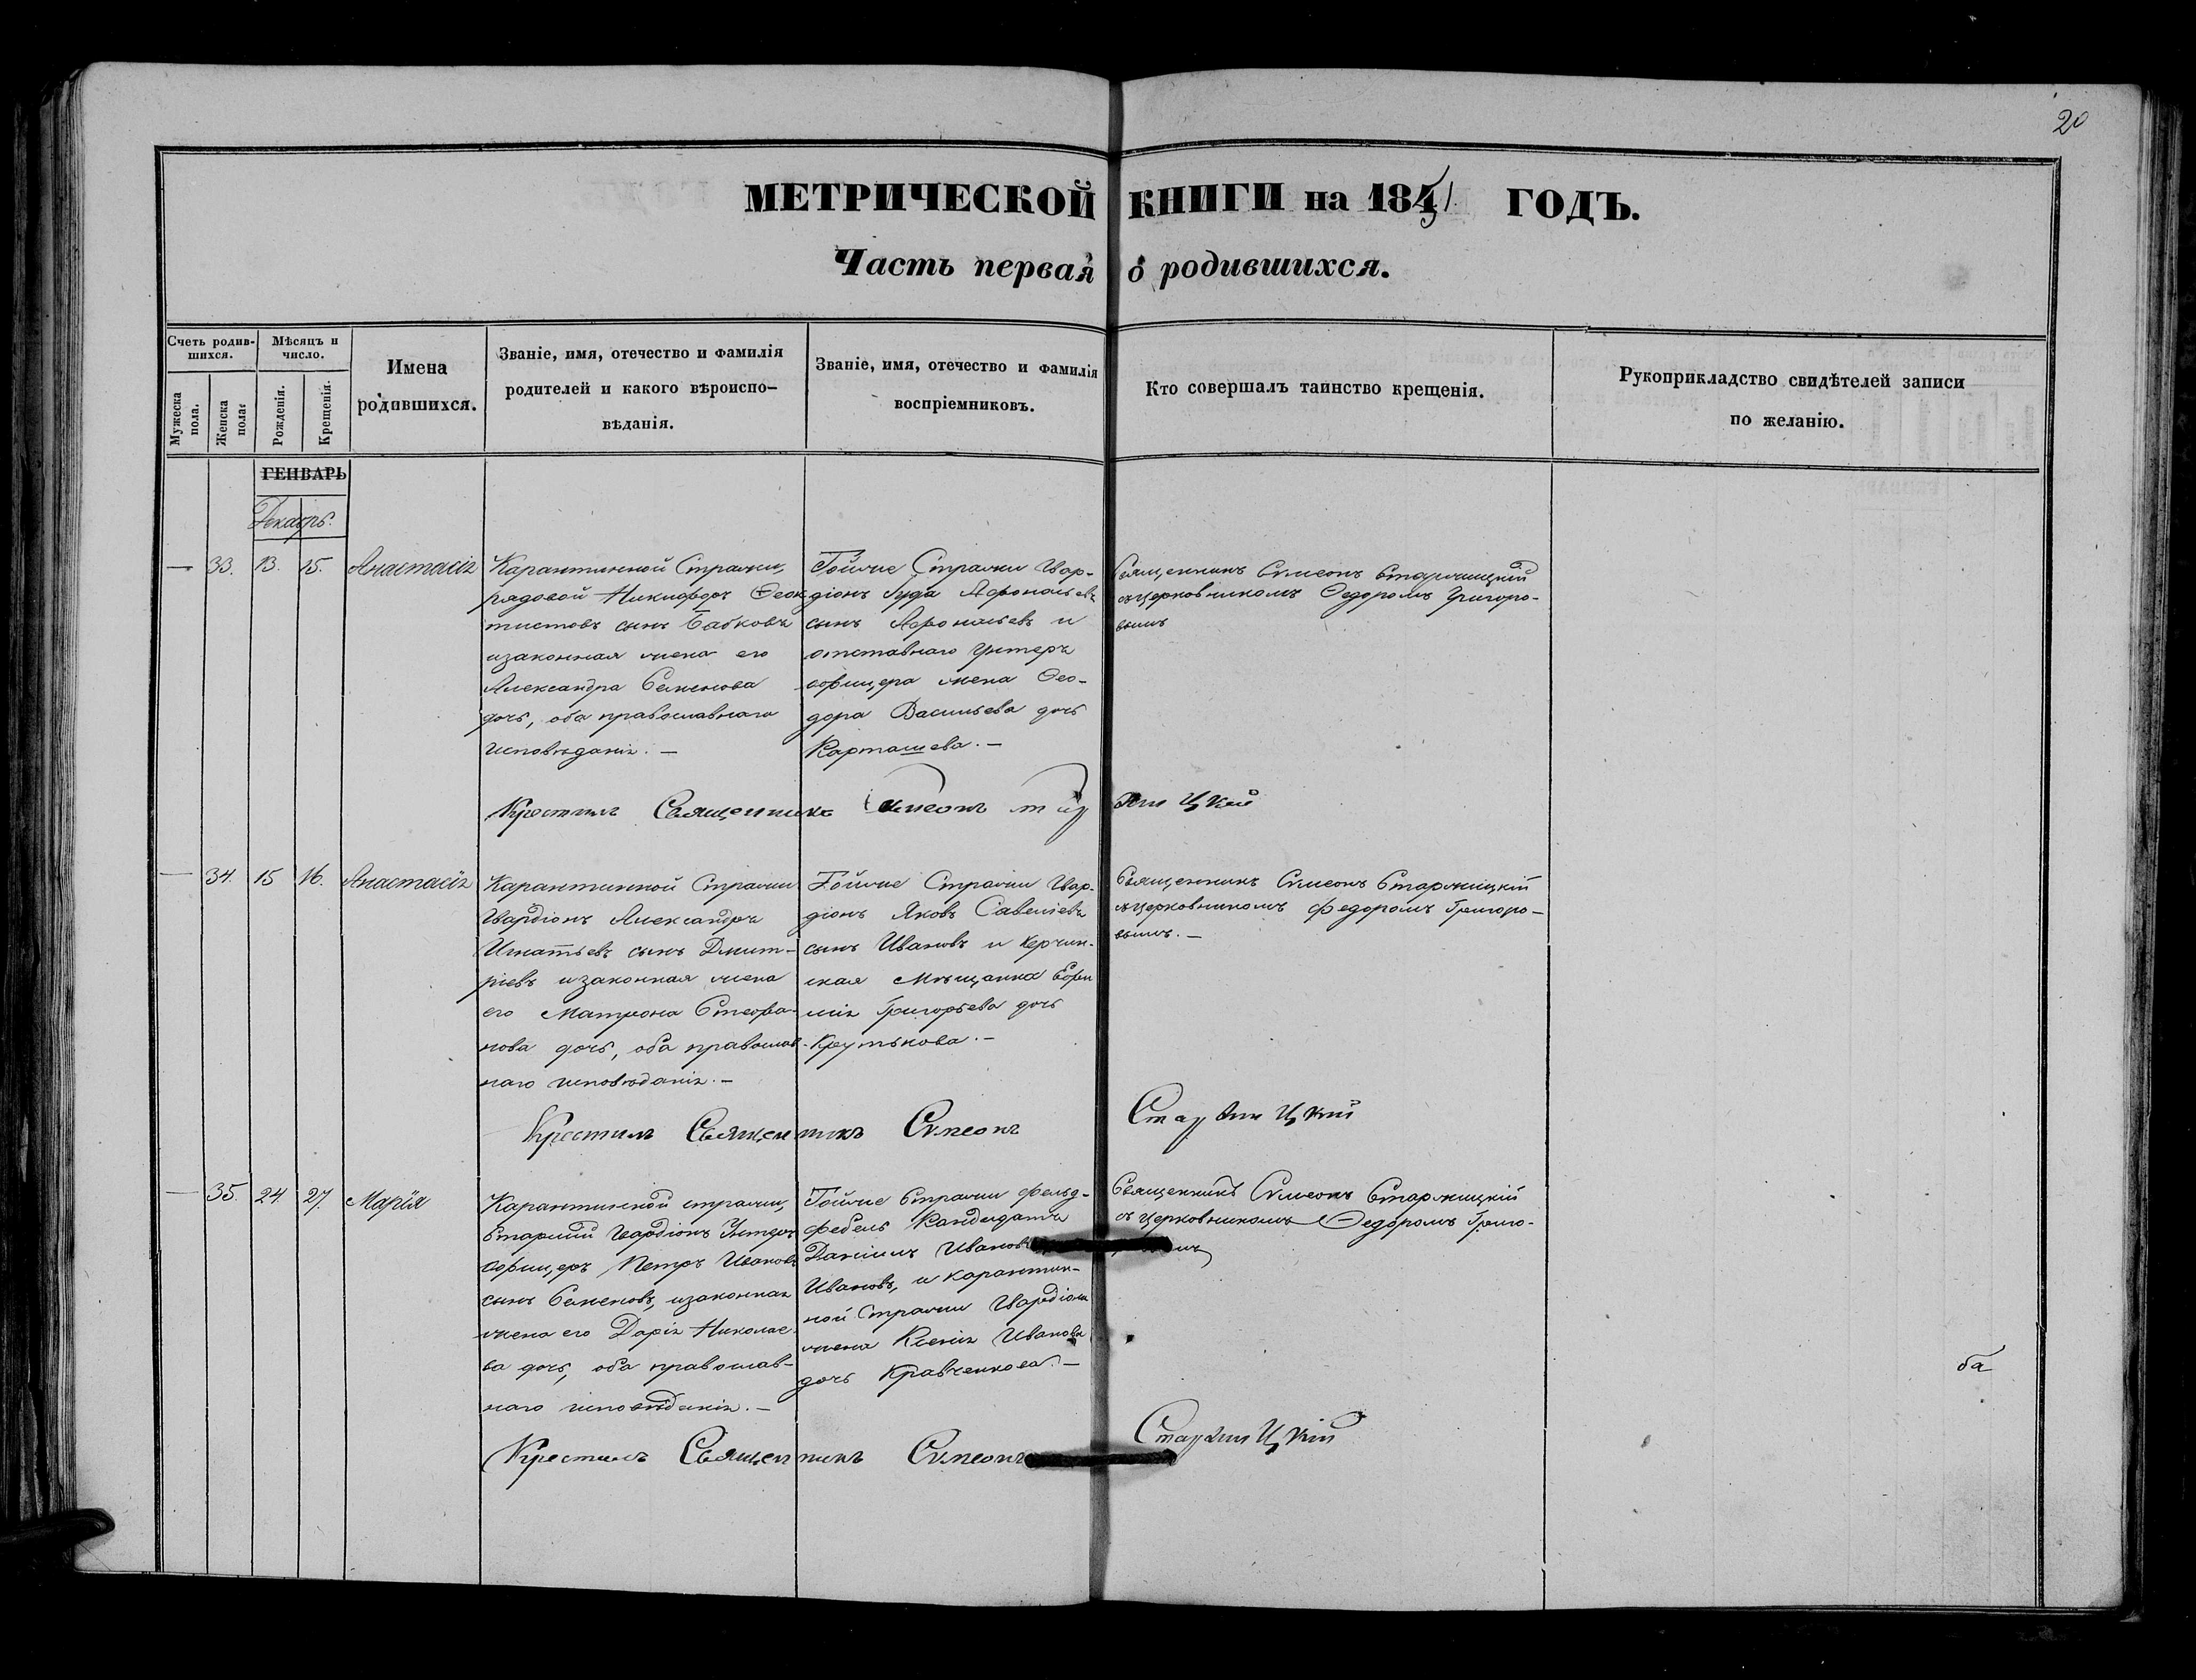 20
МЕТРИЧЕСКОЙ КНИГИ на 1851 ГОДЪ.
Часть первая о родившихся.
Счетъ родив-
шихся.
Мужеска
пола.
Женска
пола
Мѣсяцъ и
число.
Рожденія.
Крещенія.
Имена
родившихся.
Званіе, имя, отечество и фамилія
родителей и какого вѣроиспо-
вѣданія.
Званіе, имя, отечество и фамилія
воспріемниковъ.
Кто совершалъ таинство крещенія.
Рукоприкладство свидѣтелей записи
по желанію.
ГЕНВАРЬ
Декабрь.
— 33. 13. 15. Анастасія
Карантинной Стражи,
рядовой Никифоръ Феок
тистовъ сынъ Бабковъ
изаконная жена его
Александра Семенова
дочь, оба православнаго
исповѣданія. —
Тойже Стражи Гвар-
діонъ Гуда Афонасьевъ
сынъ Афонасьевъ и
отставнаго Унтеръ
офицера жена Фео-
дора Васильева дочь
Карташева. —
Священникъ Сѵмеонъ Старжицкій
съ церковникомъ Федоромъ Григоро-
вымъ
Крестилъ Священникъ Сѵмеонъ
— 34. 15 16. Анастасія
Карантинной Стражи
Гвардіонъ Александръ
Игнатьевъ сынъ Дмит-
ріевъ изаконная жена
его Матрона Стефа-
нова дочь, оба православ-
наго исповѣданія. —
Тойже Стражи Гвар-
діонъ Яковъ Савеліевъ
сынъ Ивановъ и Керчин-
ская Мѣщанка Ефи
мія Григорьева дочь
Крутькова. —
Священникъ Сѵмеонъ Старжицкій
съ церковникомъ Федоромъ Григоро-
вымъ. —
Крестилъ Священникъ Сѵмеонъ Старжицкій
— 35. 24. 27. Марія
Карантинной стражи,
Старшій Гвардіонъ Унтеръ
офицеръ Петръ Ивановъ
сынъ Семеновъ, изаконная
жена его Дарія Николае-
ва дочь, оба православ-
наго исповѣданія. —
Тойже Стражи фельд-
фебель Кандидатъ
Даніилъ Ивановъ
Ивановъ, и карантин-
ной Стражи Гвардіона
жена Ксенія Иванова
дочь Кравченкова. —
Священникъ Сѵмеонъ Старжицкій
съ церковникомъ Федоромъ Григо-
Крестилъ Священникъ Сѵмеонъ Старжицкій
ба